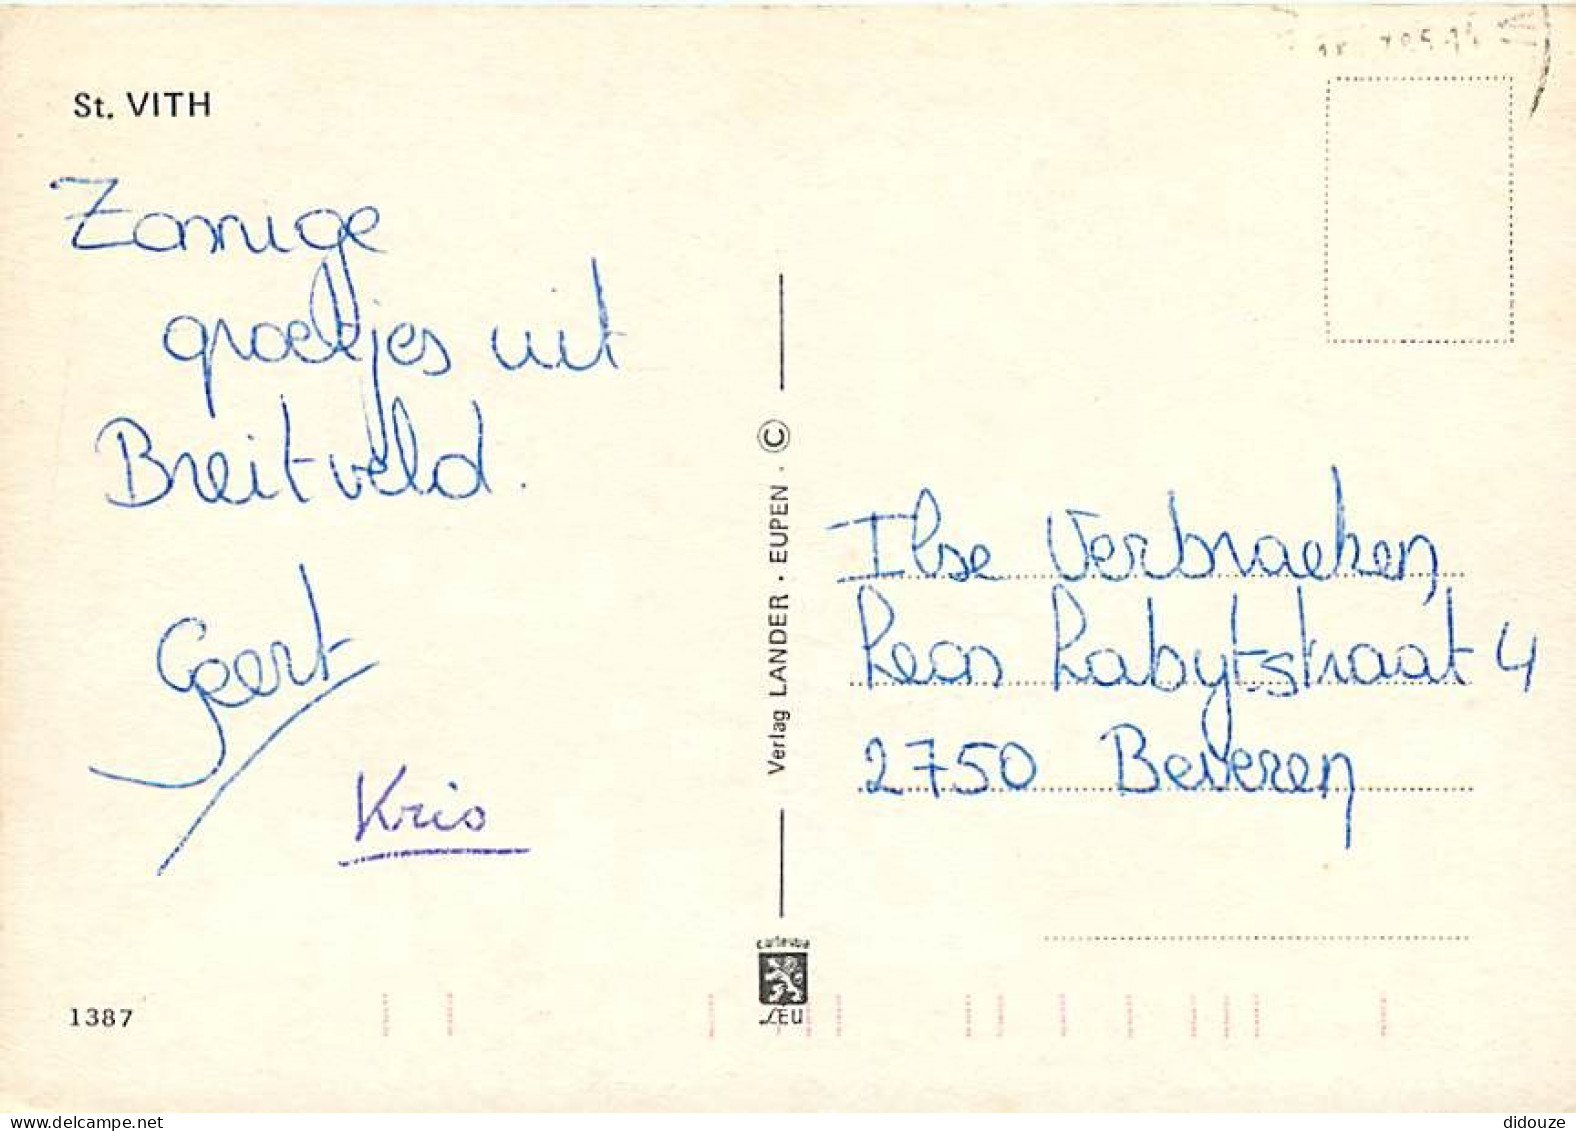 St. VITH
Zonnige
groetjes uit
Breitveld.
Geert
Kris
Verlag LANDER · EUPEN · ©
Ilse Verbraeken
Leon Labytstraat 4
2750 Beveren
LEU
1387
didouze